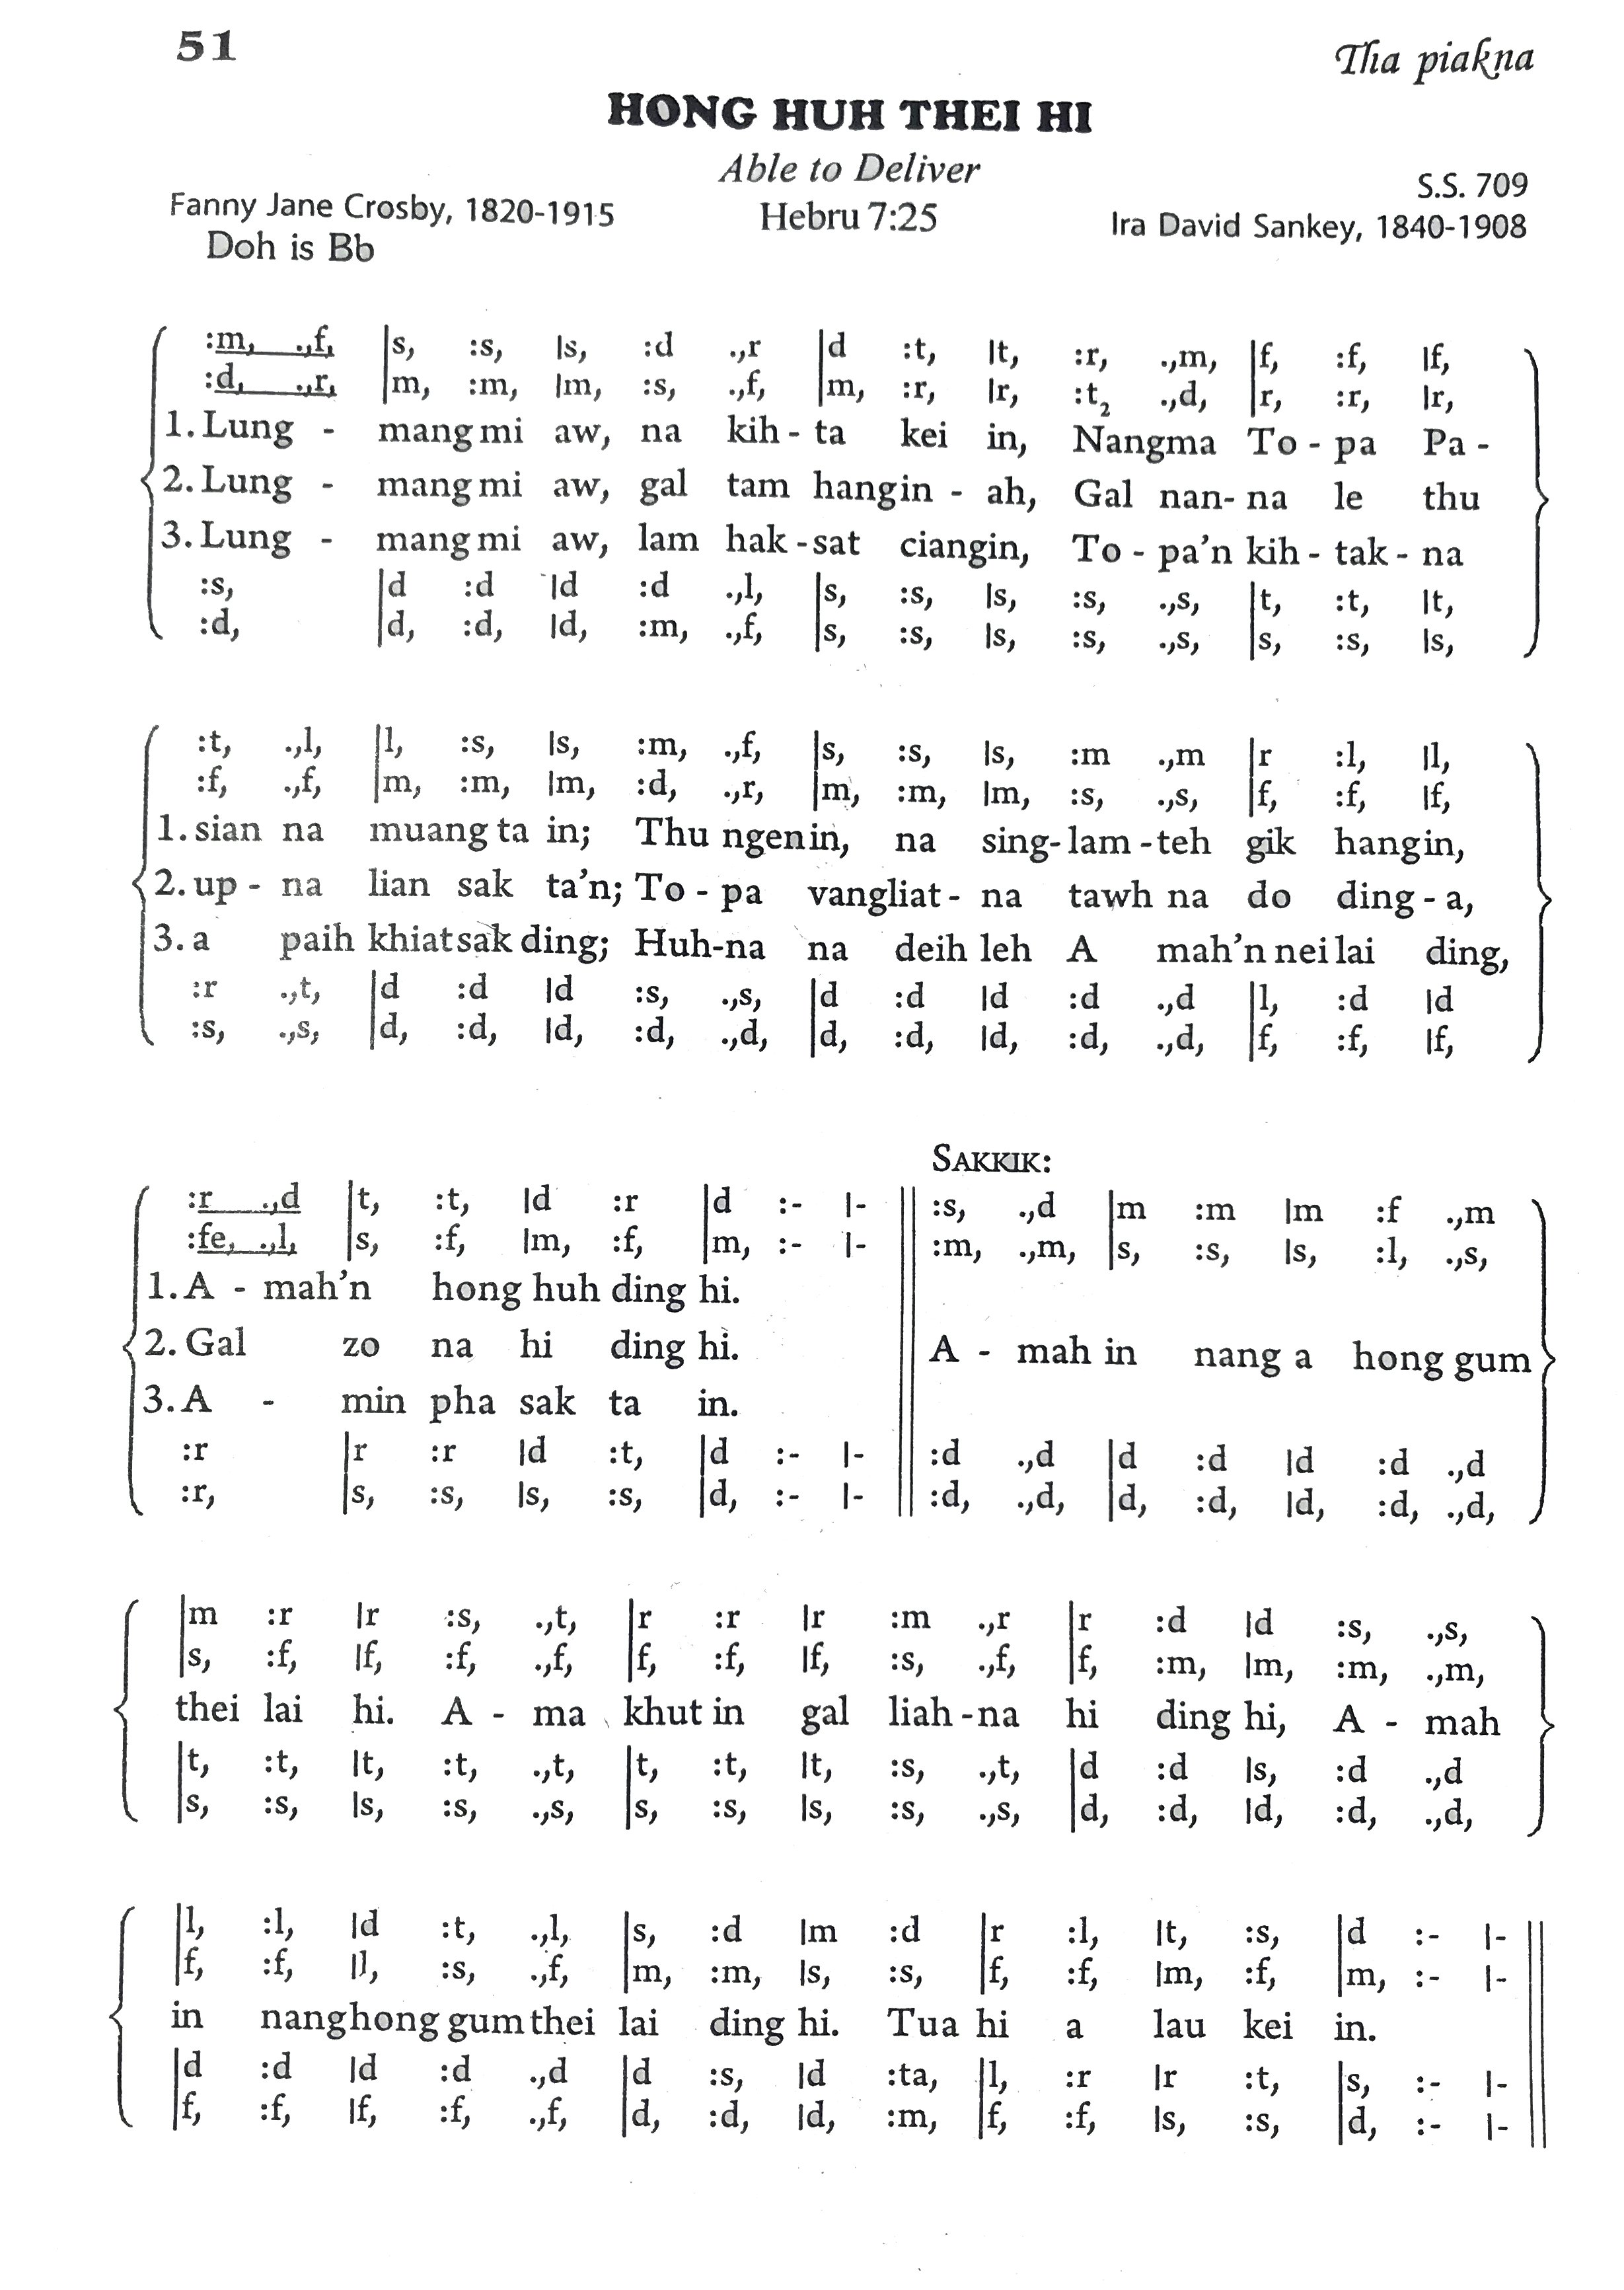 51
Tha piakna
HONG HUH THEI HI
Able to Deliver
S.S. 709
Fanny Jane Crosby, 1820-1915 Hebru 7:25 Ira David Sankey, 1840-1908
Doh is Bb
:m, .,f, |s, :s, |s, :d .,r |d :t, |t, :r, .,m, |f, :f, |f,
:d, .,r, |m, :m, |m, :s, .,f, |m, :r, |r, :t₂ .,d, |r, :r, |r,
1. Lung - mang mi aw, na kih - ta kei in, Nangma To - pa Pa -
2. Lung - mang mi aw, gal tam hangin - ah, Gal nan- na le thu
3. Lung - mang mi aw, lam hak - sat ciangin, To - pa’n kih - tak - na
:s, |d :d |d :d .,l, |s, :s, |s, :s, .,s, |t, :t, |t,
:d, |d, :d, |d, :m, .,f, |s, :s, |s, :s, .,s, |s, :s, |s,
:t, .,l, |l, :s, |s, :m, .,f, |s, :s, |s, :m .,m |r :l, |l,
:f, .,f, |m, :m, |m, :d, .,r, |m, :m, |m, :s, .,s, |f, :f, |f,
1. sian na muang ta in; Thu ngenin, na sing- lam - teh gik hangin,
2. up - na lian sak ta’n; To - pa vangliat - na tawh na do ding - a,
3. a paih khiat sak ding; Huh-na na deih leh A mah’n nei lai ding,
:r .,t, |d :d |d :s, .,s, |d :d |d :d .,d |l, :d |d
:s, .,s, |d, :d, |d, :d, .,d, |d, :d, |d, :d, .,d, |f, :f, |f,
SAKKIK:
:r .,d |t, :t, |d :r |d :- |- :s, .,d |m :m |m :f .,m
:fe, .,l, |s, :f, |m, :f, |m, :- |- :m, .,m, |s, :s, |s, :l, .,s,
1. A - mah’n hong huh ding hi.
2. Gal zo na hi ding hi. A - mah in nang a hong gum
3. A - min pha sak ta in.
:r |r :r |d :t, |d :- |- :d .,d |d :d |d :d .,d
:r, |s, :s, |s, :s, |d, :- |- :d, .,d, |d, :d, |d, :d, .,d,
|m :r |r :s, .,t, |r :r |r :m .,r |r :d |d :s, .,s,
|s, :f, |f, :f, .,f, |f, :f, |f, :s, .,f, |f, :m, |m, :m, .,m,
thei lai hi. A - ma khut in gal liah - na hi ding hi, A - mah
|t, :t, |t, :t, .,t, |t, :t, |t, :s, .,t, |d :d |s, :d .,d
|s, :s, |s, :s, .,s, |s, :s, |s, :s, .,s, |d, :d, |d, :d, .,d,
|l, :l, |d :t, .,l, |s, :d |m :d |r :l, |t, :s, |d :- |-
|f, :f, |l, :s, .,f, |m, :m, |s, :s, |f, :f, |m, :f, |m, :- |-
in nang hong gum thei lai ding hi. Tua hi a lau kei in.
|d :d |d :d .,d |d :s, |d :ta, |l, :r |r :t, |s, :- |-
|f, :f, |f, :f, .,f, |d, :d, |d, :m, |f, :f, |s, :s, |d, :- |-